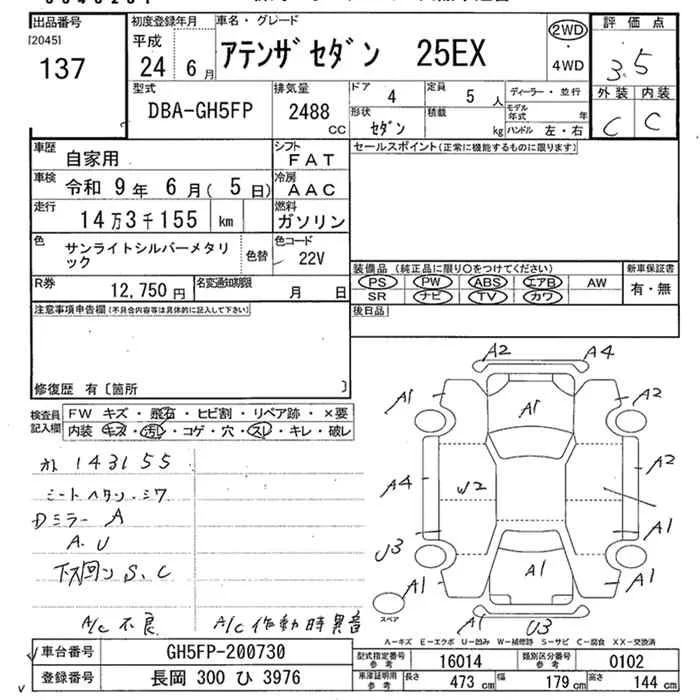 出品番号
[2045]
137
初度登録年月
平成
24 6 月
車名・グレード
アテンザセダン 25EX
2WD
・
4WD
評価点
3.5
外装 内装
C C
型式
DBA-GH5FP
排気量
2488
CC
ドア 4
定員 5 人
ディーラー・並行
形状 セダン
積載 kg
モデル年式 年
ハンドル 左・右
車歴 自家用
シフト FAT
セールスポイント(正常に機能するものに限ります)
車検 令和 9 年 6 月( 5 日)
冷房 AAC
走行 14万3千155 km
燃料 ガソリン
色 サンライトシルバーメタリック
色替
色コード 22V
装備品(純正品に限り○をつけてください)
新車保証書
PS PW ABS エアB AW
SR ナビ TV カワ
有・無
R券 12,750 円
名変通知期限 月 日
後日品
注意事項申告欄(不具合内容等は具体的に記入して下さい)
修復歴 有〔箇所 〕
検査員記入欄
FW キズ・飛石・ヒビ割・リペア跡・×要
内装 キズ・汚レ・コゲ・穴・スレ・キレ・破レ
143155
シートヘタリ・シワ
Dミラー A
A.U
下回り S、C
A/C 不良 A/C 作動時異音
A2 A4
A1 A1 A2
A4 W2 A2
U3 A1
A1 A1 A1
スペア
A1 U3
A―キズ E―エクボ U―凹み W―補修跡 S―サビ C―腐食 XX―交換済
車台番号 GH5FP-200730
型式指定番号 参考 16014
類別区分番号 参考 0102
登録番号 長岡 300 ひ 3976
車庫証明用 参考
長さ 473 cm
幅 179 cm
高さ 144 cm